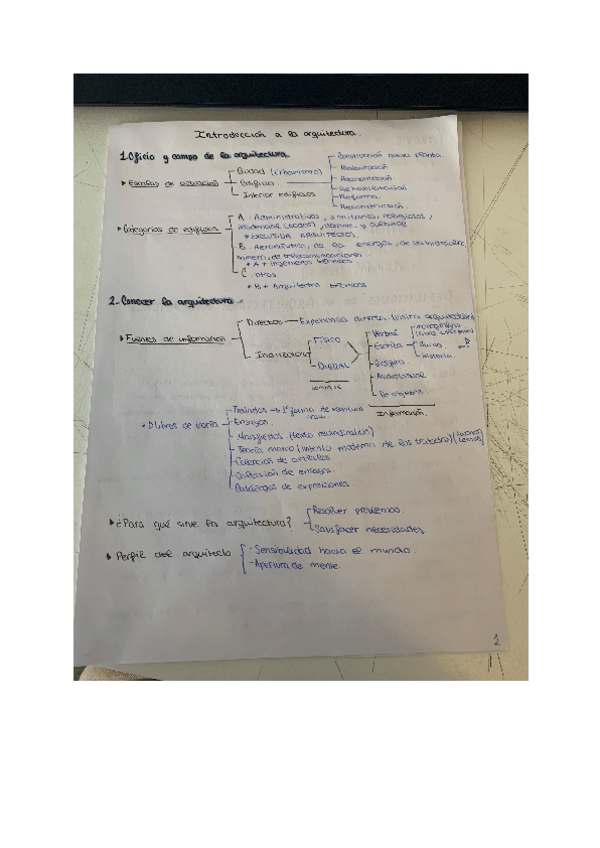 Introducción a la arquitectura.
1. Oficio y campo de la arquitectura.
Escalas de actuación
Ciudad (Urbanismo)
Edificio
Interior edificios
Construcción nueva planta.
Restauración
Rehabilitación
Reforma
Reconstrucción
Categorías de edificios
A. Administrativos, sanitarios, religiosos,
residencial, docente y cultural
* EXCLUSIVA ARQUITECTOS.
B. Aeronáutica, de la energía, de la hidráulica,
minera, de telecomunicaciones
* A + ingenieros técnicos
C otros
* B + Arquitectos técnicos
2. Conocer la arquitectura
Fuentes de información
Directos — Experiencia directa. Visita arquitectura
Indirectos
FÍSICO
DIGITAL
Verbal
Escrita
Gráfica
Audiovisual
De objetos
Guías.
Historia.
Información.
Libros de teoría
Tratados → 1ª forma de
Ensayos.
Manifiestos (texto reivindicativo)
Teoría marco (intento moderno de los tratados)
Colección de artículos.
Difusión de ensayos.
Catálogos de exposiciones.
¿Para qué sirve la arquitectura?
Resolver problemas.
Satisfacer necesidades.
Perfil del arquitecto
- Sensibilidad hacia el mundo.
- Apertura de mente.
1